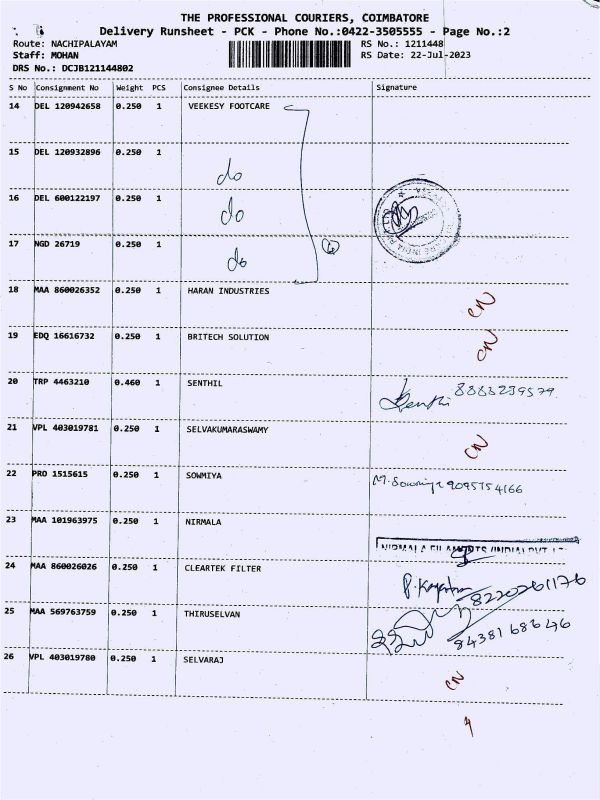 THE PROFESSIONAL COURIERS, COIMBATORE
Delivery Runsheet - PCK - Phone No.:0422-3505555 - Page No.:2
Route: NACHIPALAYAM RS No.: 1211448
Staff: MOHAN RS Date: 22-Jul-2023
DRS No.: DCJB121144802
S No Consignment No Weight PCS Consignee Details Signature
14 DEL 120942658 0.250 1 VEEKESY FOOTCARE
15 DEL 120932896 0.250 1 do
16 DEL 600122197 0.250 1 do
17 NGD 26719 0.250 1 do
18 MAA 860026352 0.250 1 HARAN INDUSTRIES CN
19 EDQ 16616732 0.250 1 BRITECH SOLUTION CN
20 TRP 4463210 0.460 1 SENTHIL Senthil 8883239579
21 VPL 403019781 0.250 1 SELVAKUMARASWAMY CN
22 PRO 1515615 0.250 1 SOWMIYA M. Sowmiya 9095754166
23 MAA 101963975 0.250 1 NIRMALA NIRMALA FILAMENTS (INDIA) PVT. LT
24 MAA 860026026 0.250 1 CLEARTEK FILTER 8220261176
25 MAA 569763759 0.250 1 THIRUSELVAN 8438168646
26 VPL 403019780 0.250 1 SELVARAJ CN
4